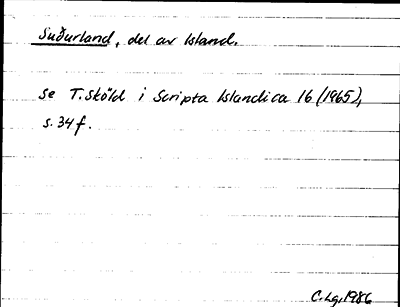 Suðurland, del av Island.
Se T. Sköld i Scripta Islandica 16 (1965),
s. 34 f.
C. Lg. 1986